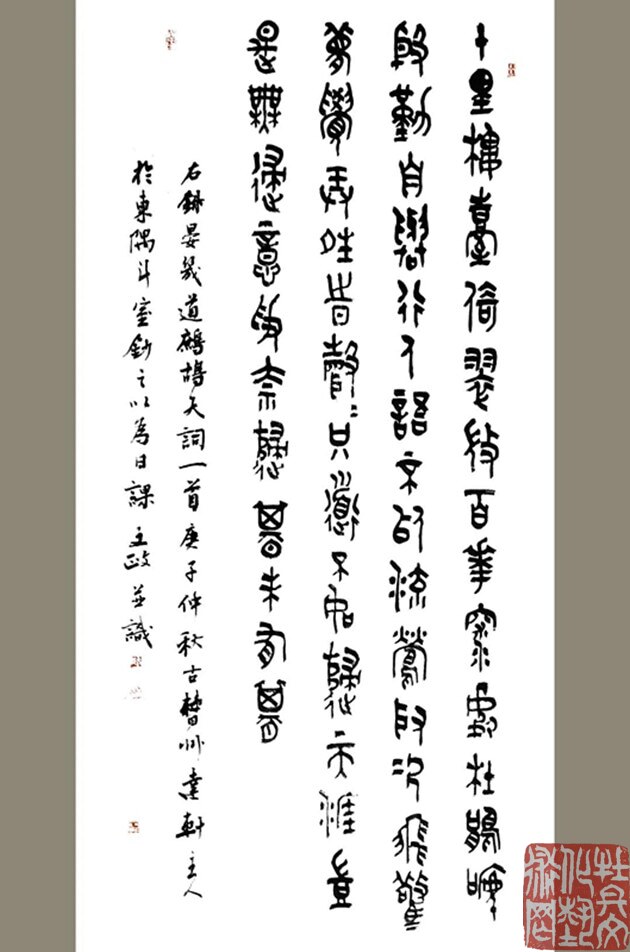 十里樓臺倚翠微百花深處杜鵑啼
殷勤自與行人語不似流鶯取次飛驚
夢覺弄晴時聲〻只道不如歸天涯豈
是無歸意爭奈歸期未有期
右錄晏幾道鷓鴣天詞一首庚子仲秋古州達軒主人
於東隅斗室鈔之以為日課主政並識